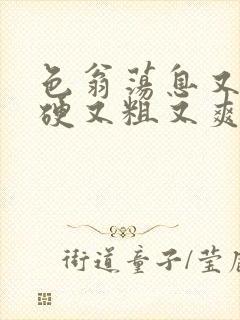 色翁荡息又
硬又粗又爽
街道童子/莹